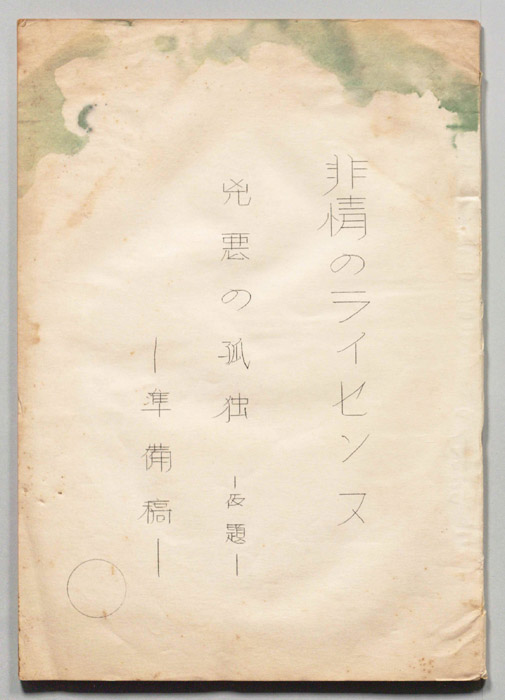 非情のライセンス
兇悪の孤独 ―仮題―
―準備稿―